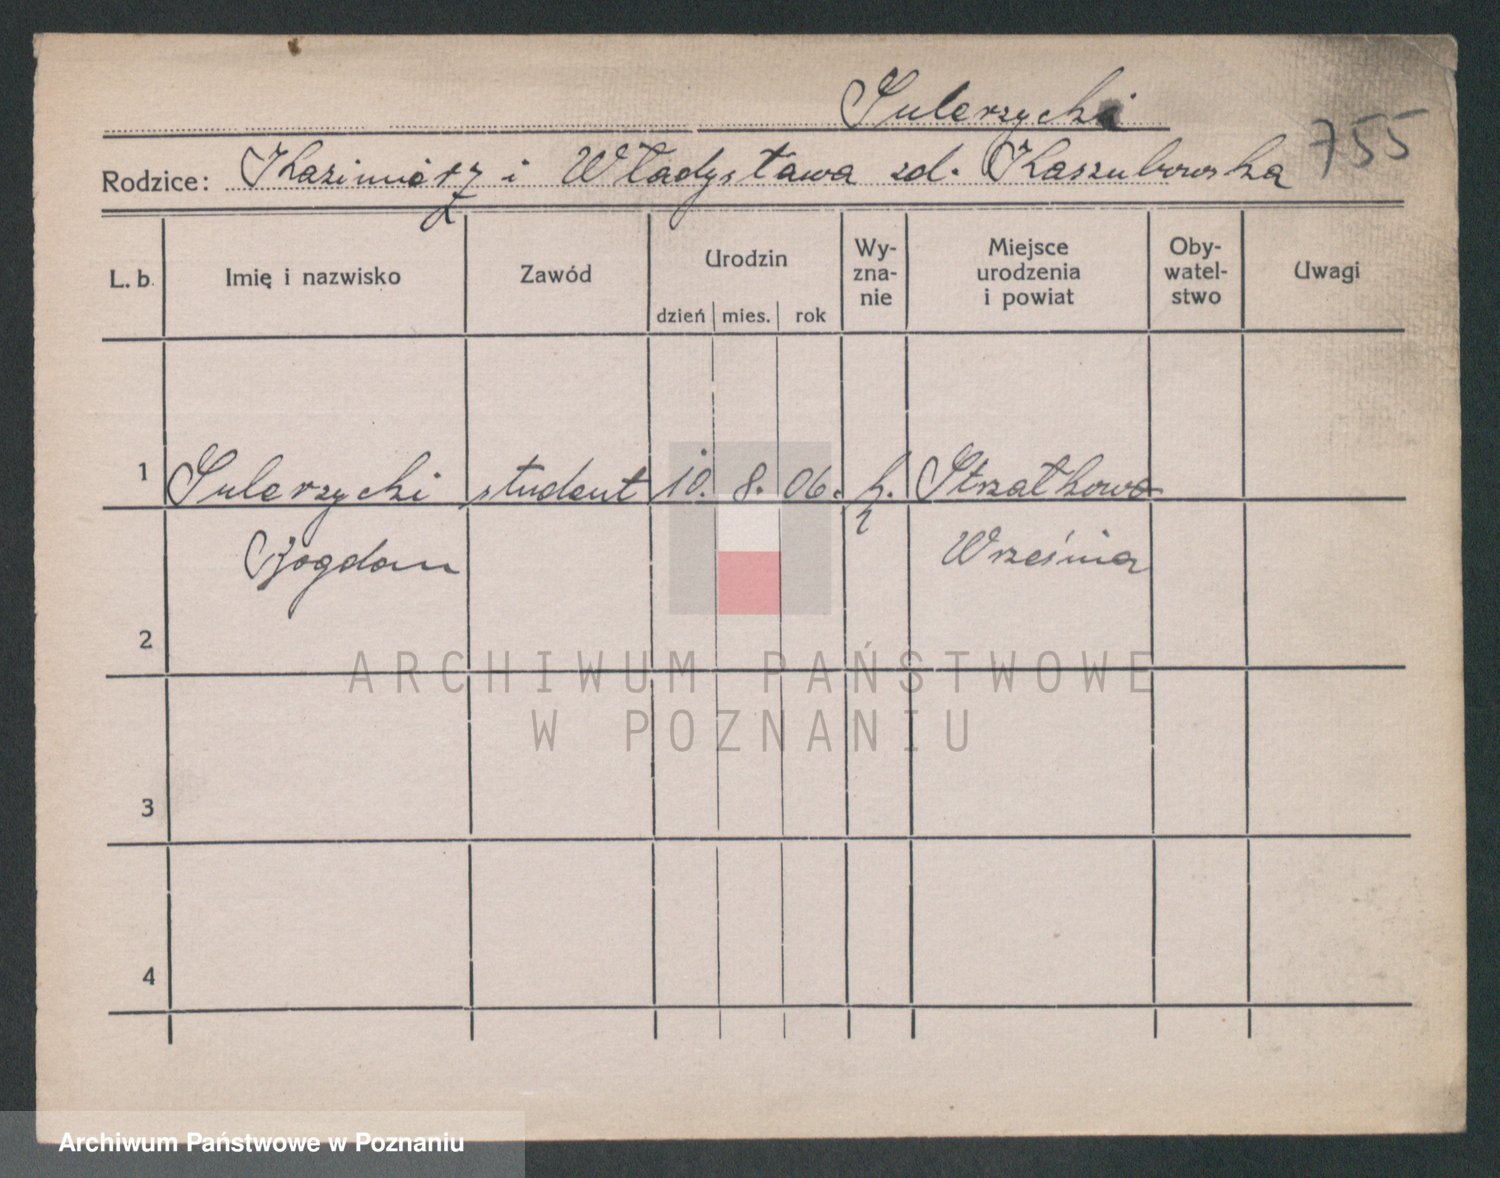 Sulerzycki
755
Rodzice: Kazimierz i Władysława zd. Kaszubowska
L. b. Imię i nazwisko Zawód Urodzin dzień mies. rok Wy-zna-nie Miejsce urodzenia i powiat Oby-watel-stwo Uwagi
1 Sulerzycki student 10. 8. 06. k. Strzałkowo
Bogdan Września
2
3
4
ARCHIWUM PAŃSTWOWE
W POZNANIU
Archiwum Państwowe w Poznaniu